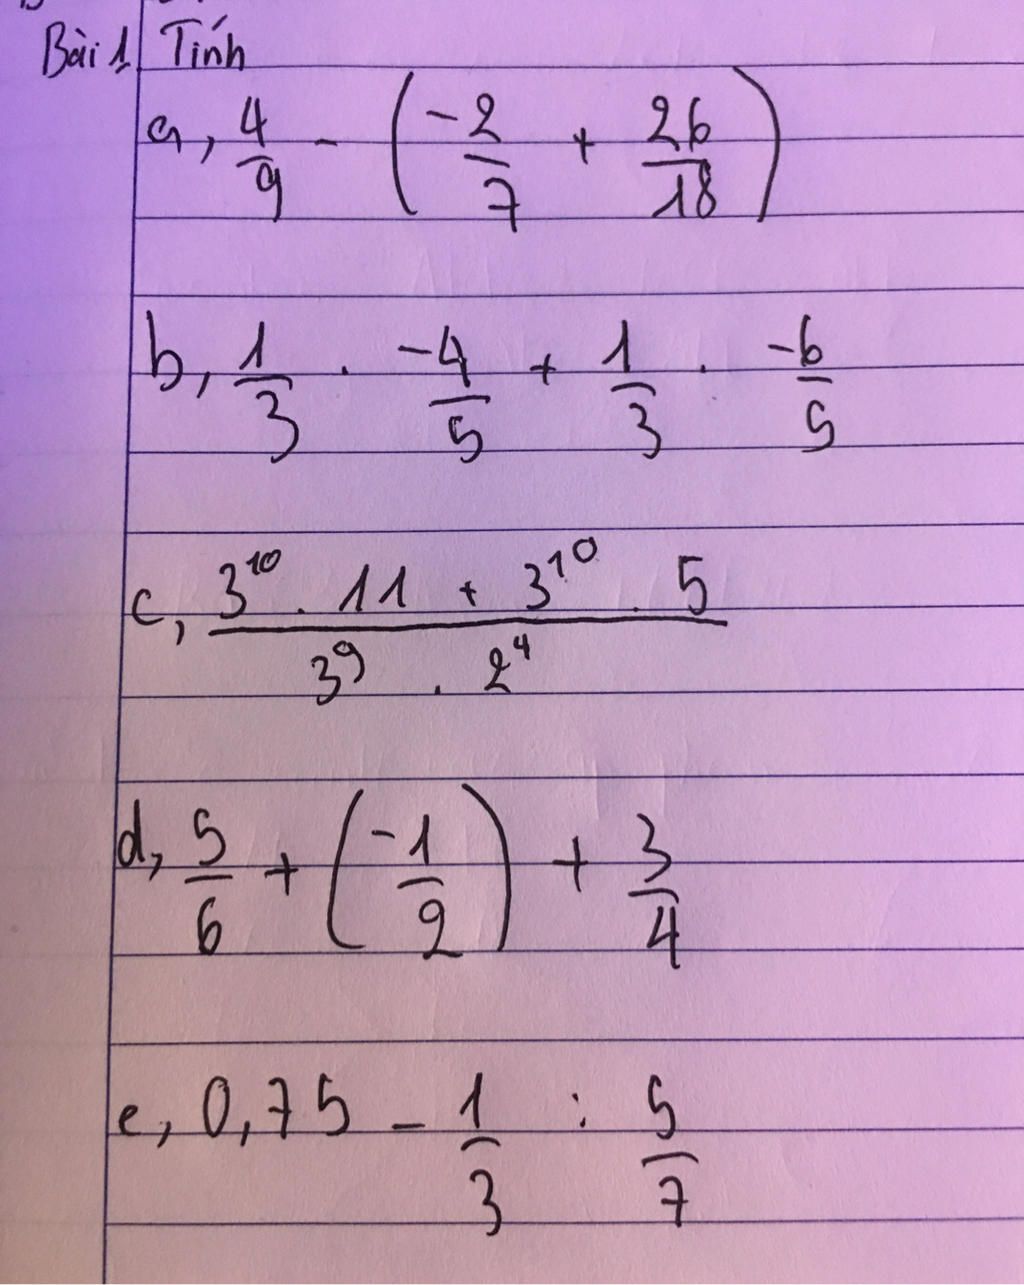 Bài 1 Tính
a, 4/9 - (-2/7 + 26/18)
b, 1/3 . -4/5 + 1/3 . -6/5
c, (3^10 . 11 + 3^10 . 5)/(3^9 . 2^4)
d, 5/6 + (-1/2) + 3/4
e, 0,75 - 1/3 : 5/7